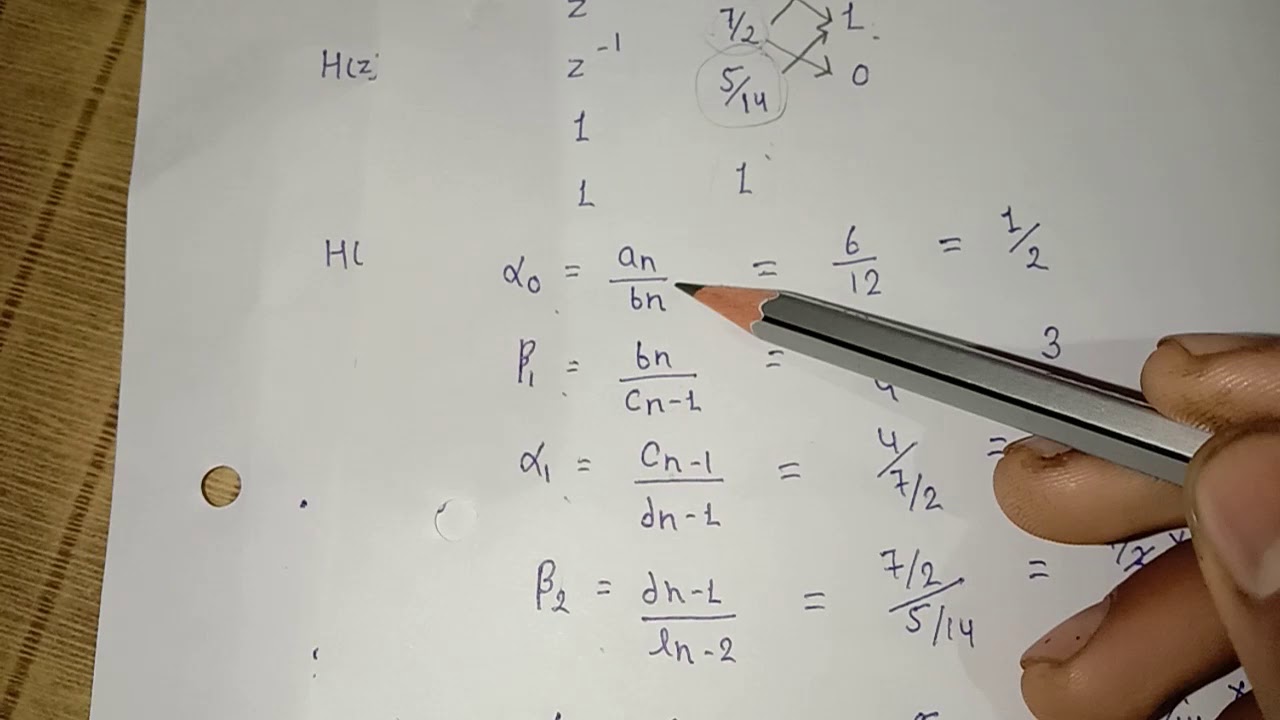 z 7/2 1
H(z) z⁻¹ 5/14 0
1
1 1
H( α₀ = an/bn = 6/12 = 1/2
β₁ = bn/Cn-1 = 4 3
α₁ = Cn-1/dn-1 = 4/7/2 =
β₂ = dn-1/ln-2 = 7/2/5/14 =